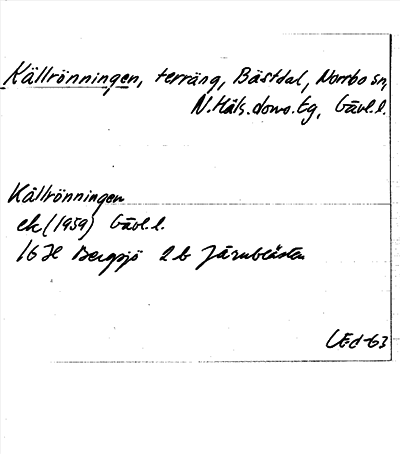 Källrönningen, terräng, Bästdal, Norrbo sn,
N.Häls.doms.tg, Gävl.l.
Källrönningen
ek (1959) Gävl.l.
16 H Bergsjö 2 b Järnblästen
LEd-63